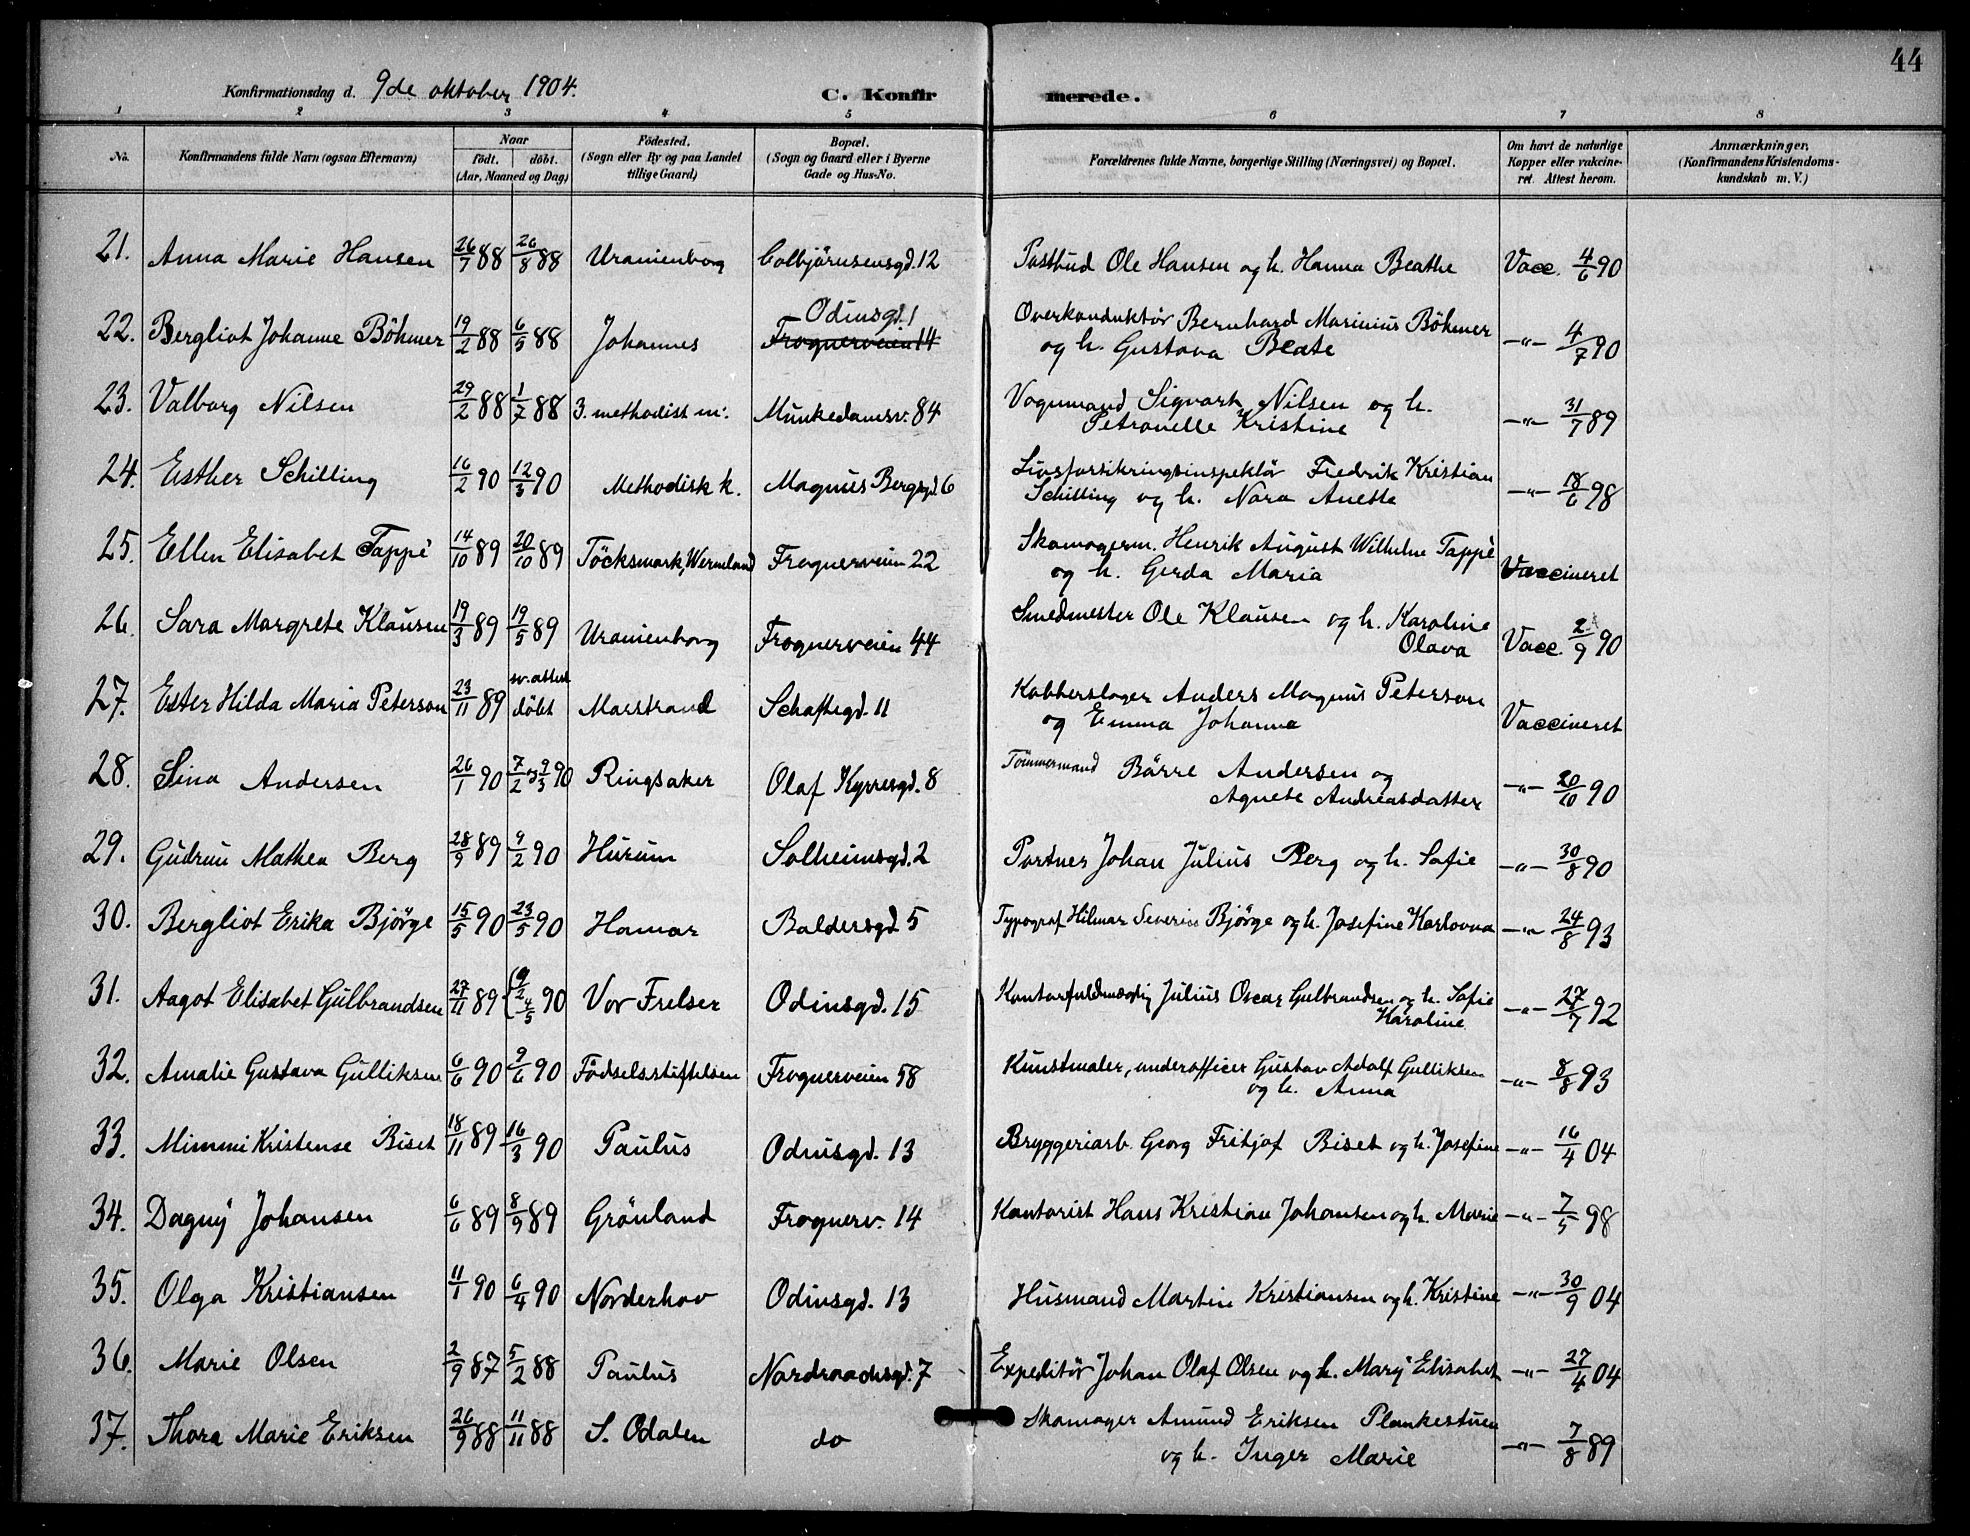 44
Konfirmationsdag d. 9de oktober 1904.
C. Konfirmerede.
1 2 3 4 5 6 7 8
No. | Konfirmandens fulde Navn (ogsaa Efternavn) | Naar født. døbt. (Aar, Maaned og Dag) | Fødested. (Sogn eller By og paa Landet tillige Gaard) | Bopæl. (Sogn og Gaard eller i Byerne Gade og Hus-No. | Forældrenes fulde Navne, borgerlige Stilling (Næringsvei) og Bopæl. | Om havt de naturlige Kopper eller vakcineret. Attest herom. | Anmærkninger. (Konfirmandens Kristendomskundskab m. V.)
21. Anna Marie Hansen 26/7 88 26/8 88 Uranienborg Colbjørnsensgd. 12 Postbud Ole Hansen og h. Hanna Beathe Vacc. 4/6 90
22. Bergliot Johanne Böhmer 19/2 88 6/5 88 Johannes Odinsgd. 1 Frognerveien 14 Overkonduktör Bernhard Marinius Böhmer
og h. Gustava Beate -"- 4/7 90
23. Valborg Nilsen 29/2 88 1/7 88 3. methodist m. Munkedamsv. 84 Vognmand Sigvart Nilsen og h.
Petronelle Kristine -"- 31/7 89
24. Esther Schilling 16/2 90 12/3 90 Methodisk k. Magnus Bergsgd 6 Livsforsikringsinspektör Fredrik Kristian
Schilling og h. Nora Anette -"- 18/6 98
25. Ellen Elisabet Tappé 14/10 89 20/10 89 Töcksmark, Wermland Frognerveien 22 Skomagerm. Henrik August Wilhelm Tappè
og h. Gerda Maria Vaccineret
26. Sara Margrete Klausen 19/3 89 19/5 89 Uranienborg Frognerveien 44 Smedmester Ole Klausen og h. Karoline
Olava Vacc. 2/9 90
27. Ester Hilda Maria Peterson 23/11 89 sv. attest döbt Marstrand Schaftsgd. 11 Kobberslager Anders Magnus Peterson
og Emma Johanna Vaccineret
28. Sina Andersen 26/1 90 7/2 9/3 90 Ringsaker Olaf Kyrresgd. 8 Tömmermand Börre Andersen og
Agnete Andreasdatter -"- 20/10 90
29. Gudrun Mathea Berg 28/9 89 9/2 90 Hurum Solheimsgd. 2 Portner Johan Julius Berg og h. Sofie -"- 30/8 90
30. Bergliot Erika Bjørge 15/5 90 23/5 90 Hamar Baldersgd. 5 Typograf Hilmar Severin Bjørge og h. Josefine Karlovna -"- 24/8 93
31. Aagot Elisabet Gulbrandsen 27/11 89 (9/2 4/5 90 Vor Frelser Odinsgd. 15 Kontorfuldmægtig Julius Oscar Gulbrandsen og h. Sofie
Karoline -"- 27/7 92
32. Amalie Gustava Gulliksen 6/6 90 9/6 90 Födselsstiftelsen Frognerveien 58 Kunstmaler, underofficer Gustav Adolf Gulliksen
og h. Anna -"- 8/8 93
33. Mimmi Kristense Biset 18/11 89 16/3 90 Paulus Odinsgd. 13 Bryggeriarb. Georg Fritjof Biset og h. Josefine -"- 16/4 04
34. Dagny Johansen 6/6 89 8/9 89 Grönland Frognerv. 14 Kontorist Hans Kristian Johansen og h. Marie -"- 7/5 98
35. Olga Kristiansen 11/1 90 6/4 90 Norderhov Odinsgd. 13 Husmand Martin Kristiansen og h. Kristine -"- 30/9 04
36. Marie Olsen 2/9 87 5/2 88 Paulus Nordraachsgd. 7 Expeditör Johan Olaf Olsen og h. Mary Elisabet -"- 27/4 04
37. Thora Marie Eriksen 26/9 88 11/11 88 S. Odalen do Skomager Amund Eriksen Plankestuen
og h. Inger Marie -"- 7/8 89